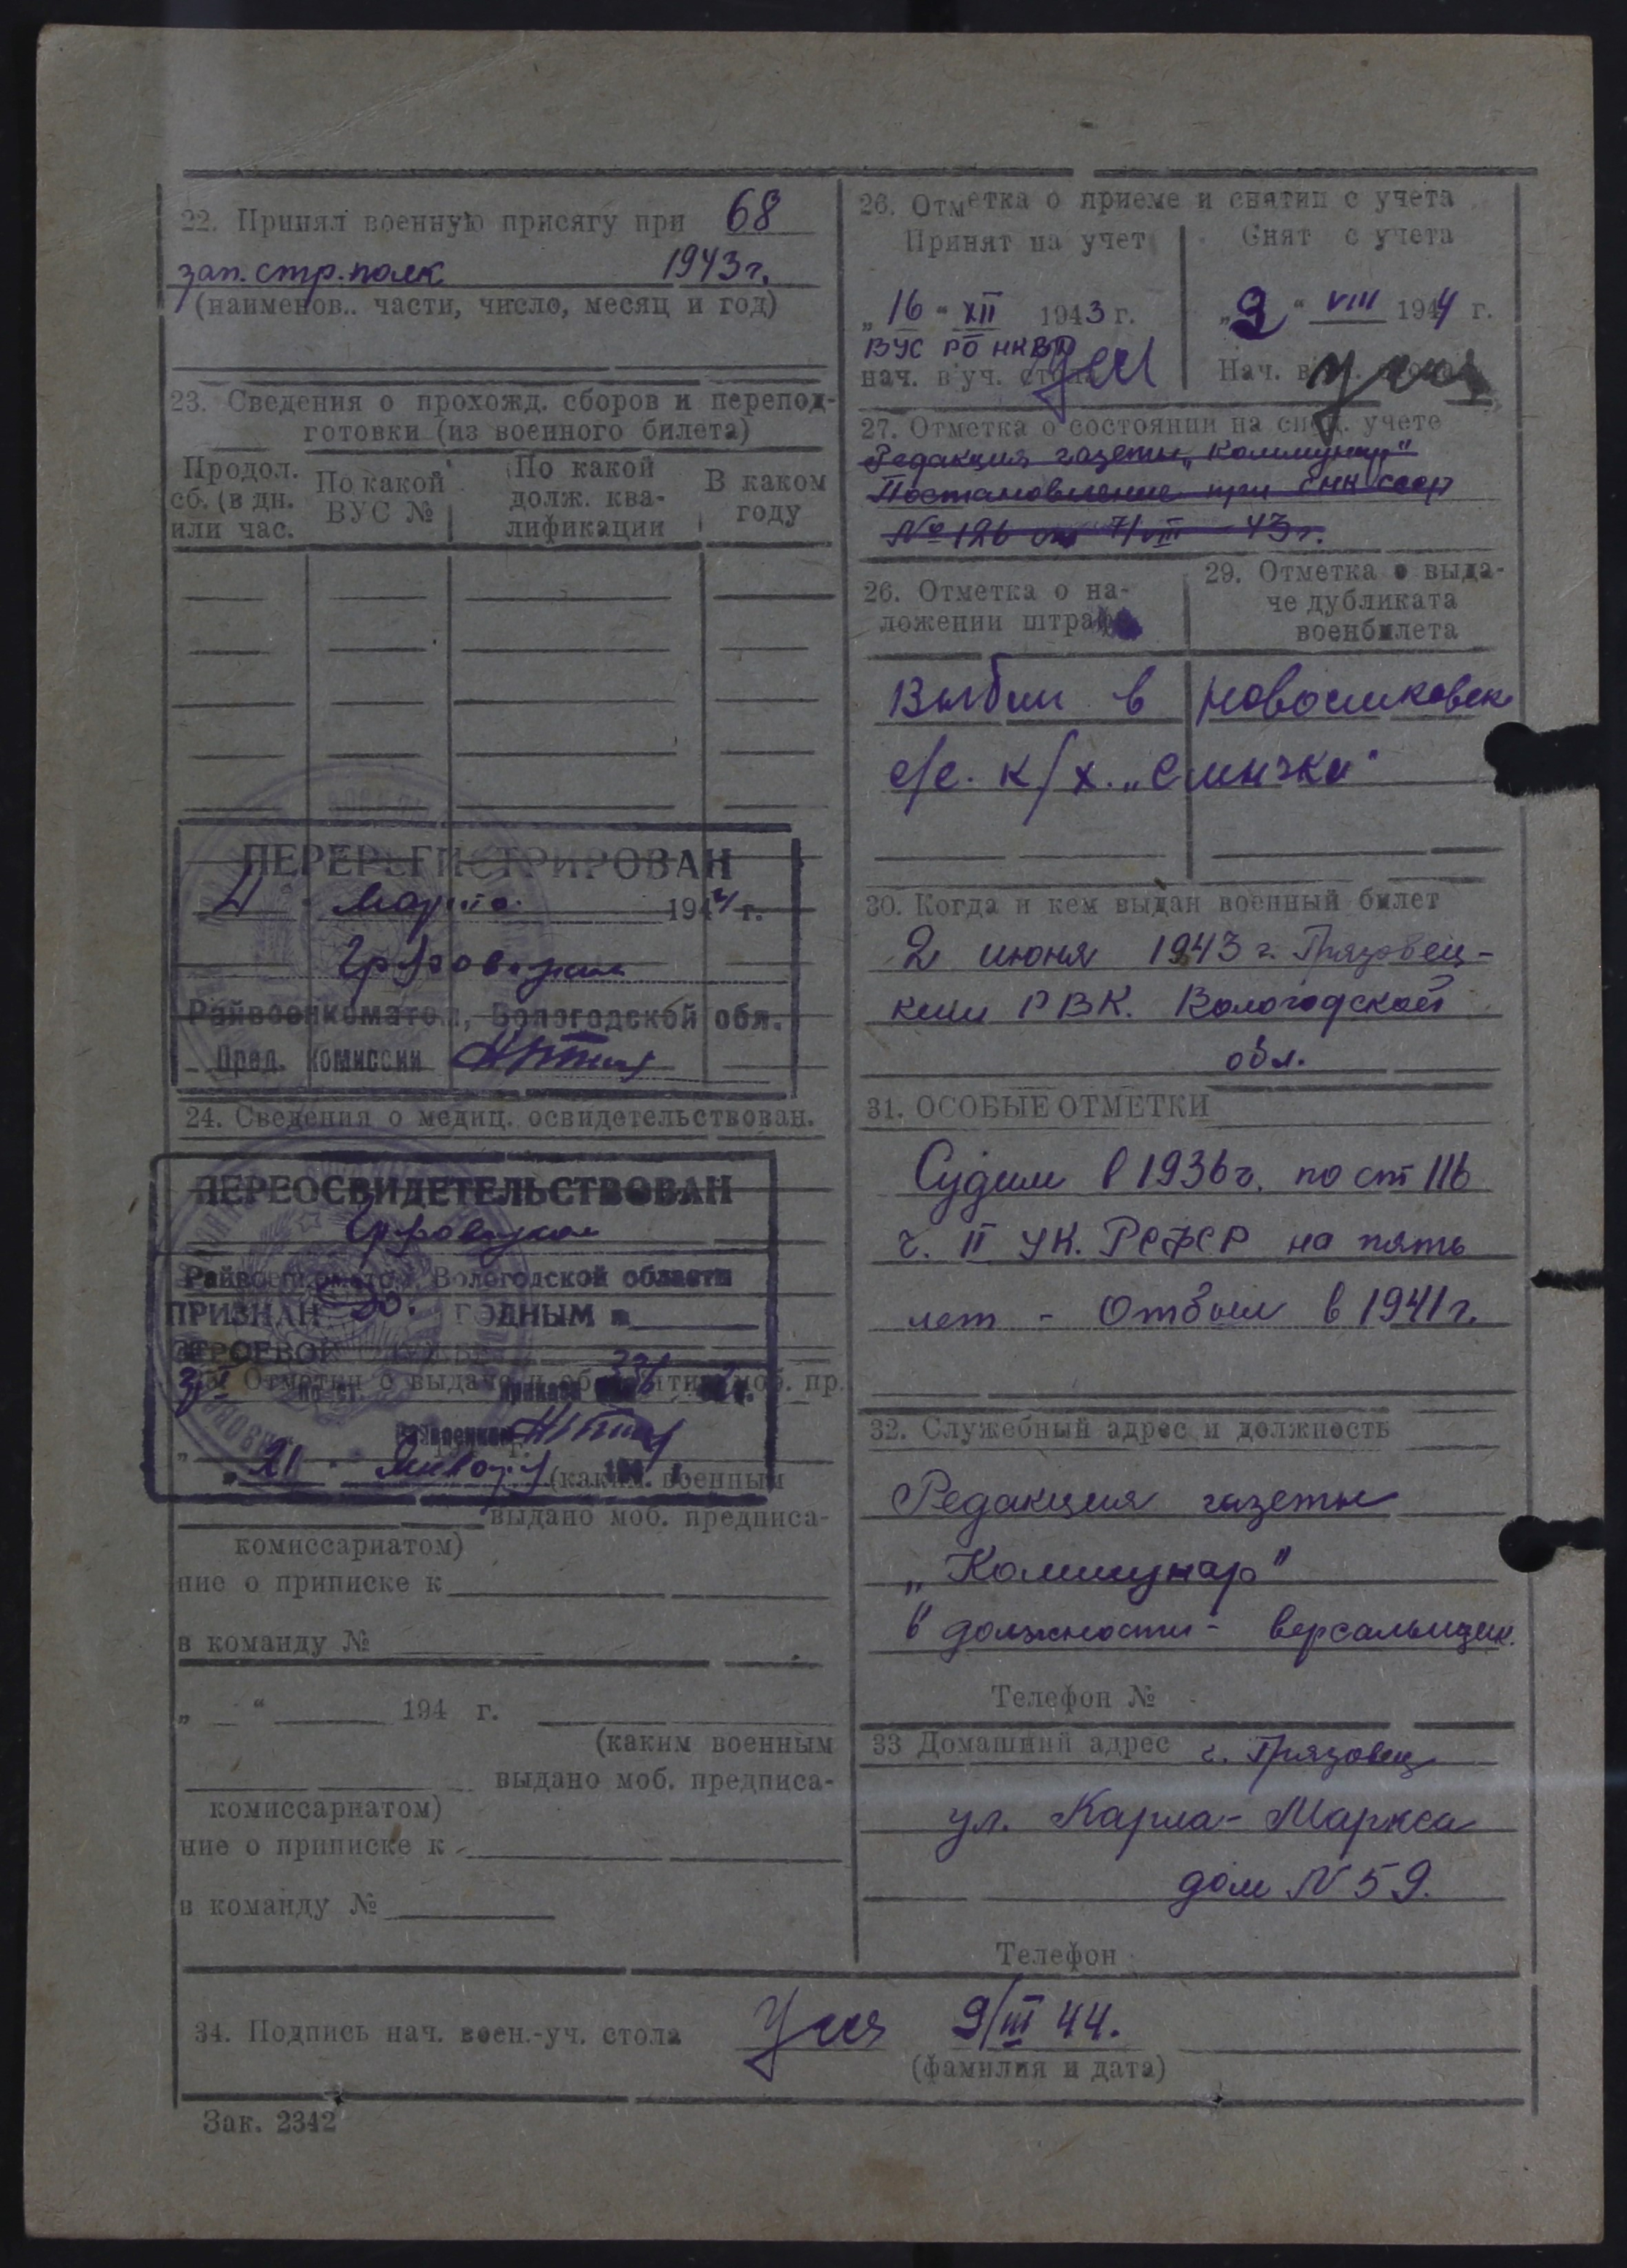 22. Принял военную присягу при 68
зап. стр. полк 1943 г.
(наименов.. части, число, месяц и год)
23. Сведения о прохожд. сборов и перепод-
готовки (из военного билета)
Продол.
сб. (в дн.
или час.
По какой
ВУС №
По какой
долж. ква-
лификации
В каком
году
ПЕРЕРЕГИСТРИРОВАН
Марта 1944 г.
Райвоенкоматом, Вологодской обл.
Пред. комиссии
24. Сведения о медиц. освидетельствован.
ПЕРЕОСВИДЕТЕЛЬСТВОВАН
Райвоенкоматом Вологодской области
ПРИЗНАН ГОДНЫМ к
СТРОЕВОЙ
Отметки о выдаче и моб. пр.
„21"
(каким военным
выдано моб. предписа-
комиссариатом)
ние о приписке к
в команду №
„ " 194 г.
(каким военным
выдано моб. предписа-
комиссариатом)
ние о приписке к
в команду №
26. Отметка о приеме и снятии с учета
Принят на учет
„16" XII 1943 г.
ВУС РО НКВД
нач. в.уч. стола
Снят с учета
„9" VIII 1944 г.
Нач. в. стола
27. Отметка о состоянии на спец. учете
Редакция газеты „Коммунар"
Постановление при СНК СССР
№ 126 от 7/VIII - 43 г.
26. Отметка о на-
ложении штрафа
29. Отметка о выда-
че дубликата
военбилета
Выбыл в
с/с. к/х.
30. Когда и кем выдан военный билет
2 июня 1943 г. Грязовец-
ким РВК. Вологодской
обл.
31. ОСОБЫЕ ОТМЕТКИ
Судим в 1936 г. по ст 116
ч. II УК. РСФСР на пять
лет - Отбыл в 1941 г.
32. Служебный адрес и должность
Редакция газеты
„Коммунар"
в должности - версальщик.
Телефон №
33 Домашний адрес г. Грязовец
ул. Карла-Маркса
дом N 59.
Телефон
34. Подпись нач. воен.-уч. стола 9/III 44.
(фамилия и дата)
Зак. 2342